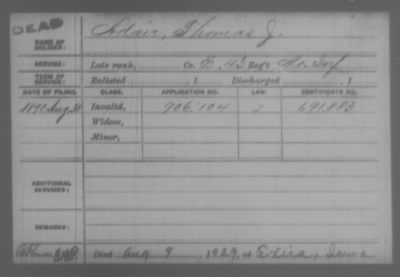 DEAD
Adair, Thomas J.
NAME OF SOLDIER:
SERVICE: Late rank, Co. E, 43 Reg't Mo. Inf
TERM OF SERVICE: Enlisted , 1 Discharged , 1
DATE OF FILING. CLASS. APPLICATION NO. LAW. CERTIFICATE NO.
1890 Aug Invalid, 906.104 J 691.883
Widow,
Minor,
ADDITIONAL SERVICES:
REMARKS:
Died Aug 9, 1929, at Elvira, Iowa